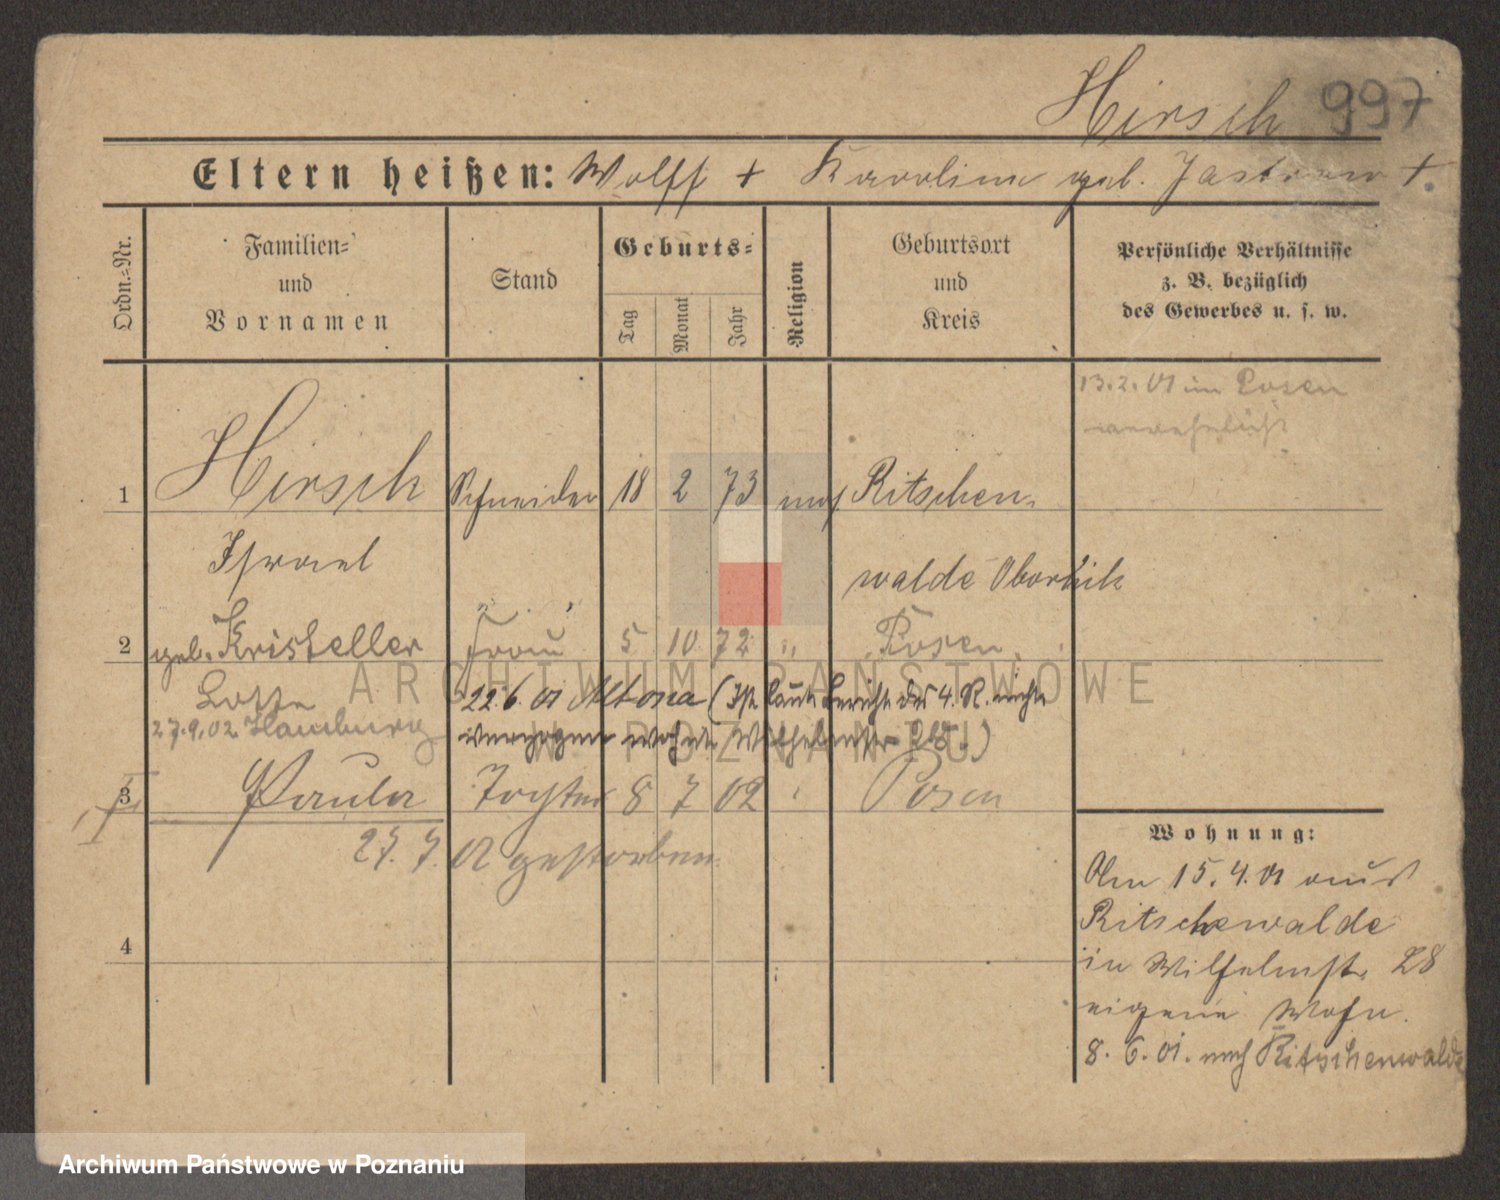 Hirsch 997
Eltern heißen: Wolff + Karoline geb. Jastrow +
Ordn.-Nr.
Familien-
und
Vornamen
Stand
Geburts-
Tag
Monat
Jahr
Religion
Geburtsort
und
Kreis
Persönliche Verhältnisse
z. B. bezüglich
des Gewerbes u. s. w.
13.2.01 in Posen
verehelicht
1 Hirsch Schneider 18 2 73 mos Ritschen-
Israel walde Obornik
2 geb. Kristeller Frau 5 10 72 " Posen
22.6.01 Altona (Ist laut Bericht des 4. R. nicht
27.9.02 Hamburg
verzogen wohnt Wilhelmstr. 28.)
3 Paula Tochter 8 7 02 Posen
27. 7. 02 gestorben
4
Wohnung:
Am 15. 4. 01 aus
Ritschewalde
in Wilhelmstr. 28
eigene Wohn.
8. 6. 01. nach Ritschenwalde
ARCHIWUM PAŃSTWOWE
W POZNANIU
Archiwum Państwowe w Poznaniu